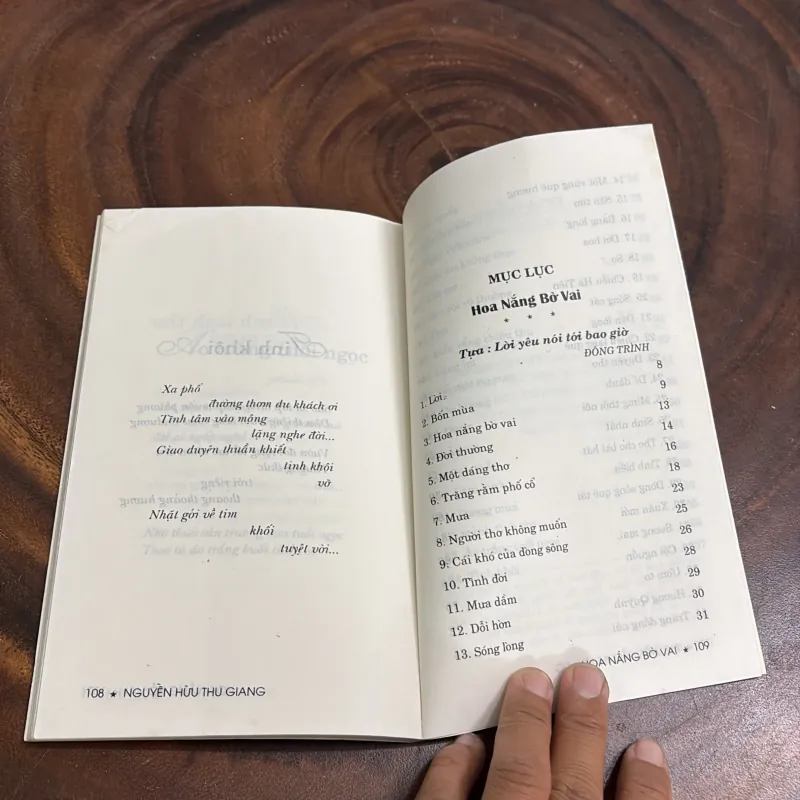 Tinh khôi
Xa phố
đường thơm du khách ơi
Tĩnh tâm vào mộng
lặng nghe đời...
Giao duyên thuần khiết
tinh khôi
vỡ
Nhặt gởi về tim
khối
tuyệt vời...
108 ★ NGUYỄN HỮU THU GIANG
MỤC LỤC
Hoa Nắng Bờ Vai
* * *
Tựa : Lời yêu nói tới bao giờ
ĐÔNG TRÌNH
1. Lời 8
2. Bốn mùa 9
3. Hoa nắng bờ vai 13
4. Đời thường 14
5. Một dáng thơ 16
6. Trăng rằm phố cổ 18
7. Mưa 23
8. Người thơ không muốn 25
9. Cái khó của dòng sông 26
10. Tình đời 28
11. Mưa dầm 29
12. Dỗi hờn 30
13. Sóng lòng 31
HOA NẮNG BỜ VAI ★ 109